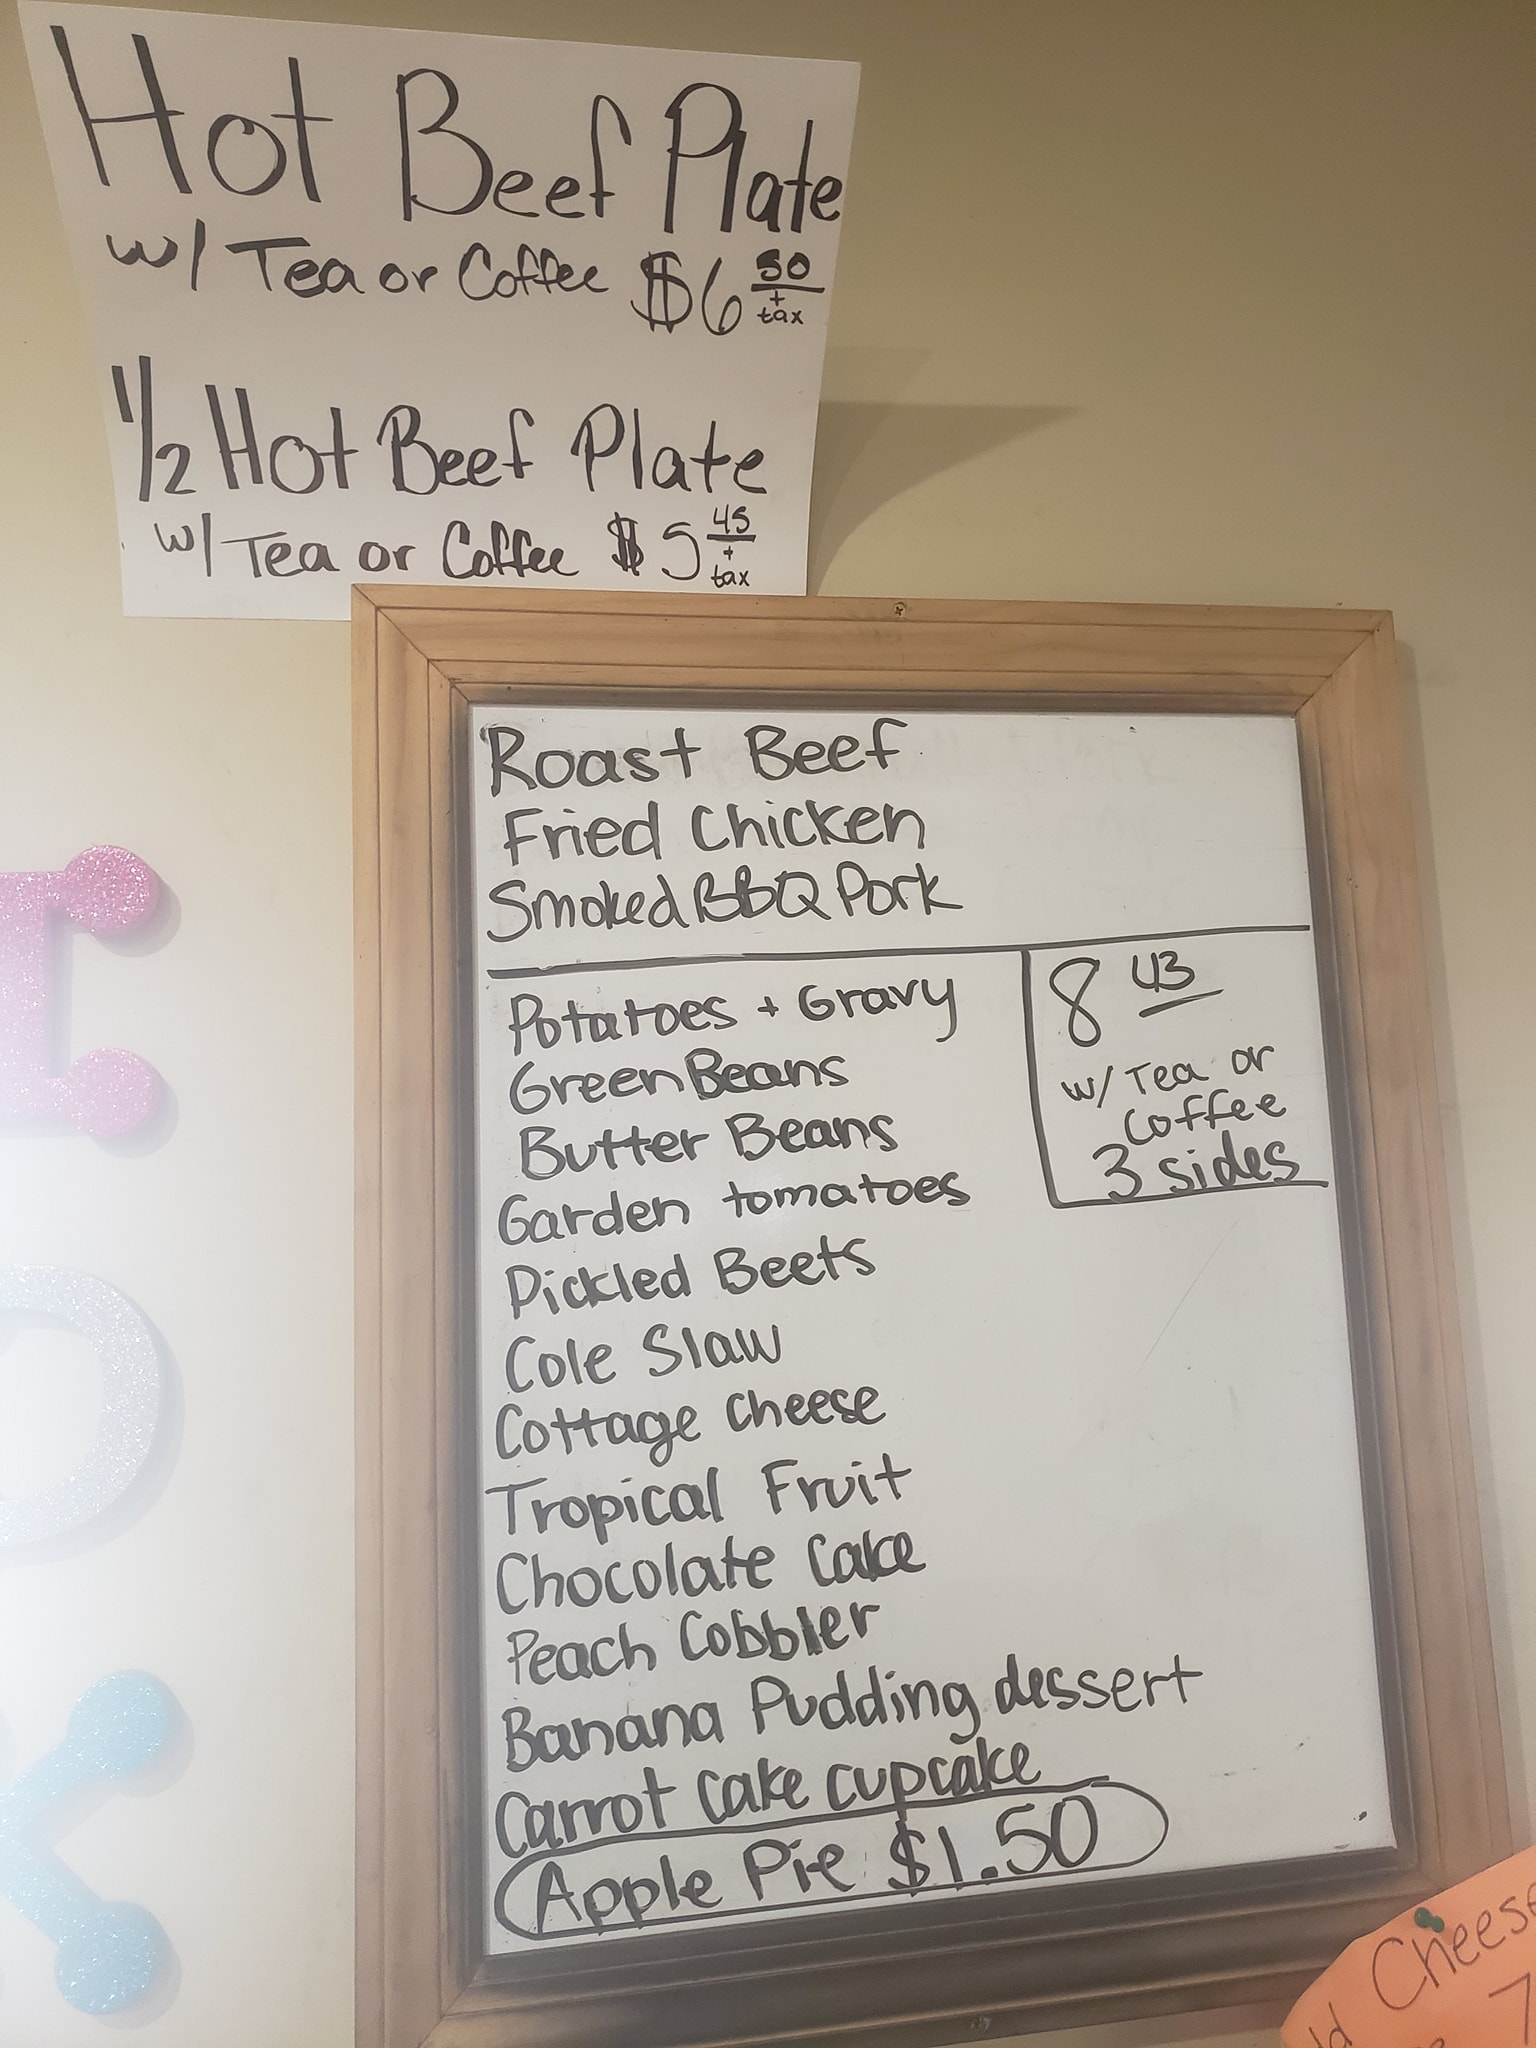 Hot Beef Plate
w/ Tea or Coffee $6 50
+
tax
1/2 Hot Beef Plate
w/ Tea or Coffee $5 45
+
tax
Roast Beef
Fried Chicken
Smoked BBQ Pork
Potatoes + Gravy
Green Beans
Butter Beans
Garden tomatoes
Pickled Beets
Cole Slaw
Cottage Cheese
Tropical Fruit
Chocolate Cake
Peach Cobbler
Banana Pudding dessert
Carrot Cake cupcake
Apple Pie $1.50
8 43
w/ Tea or
Coffee
3 sides
Cheese